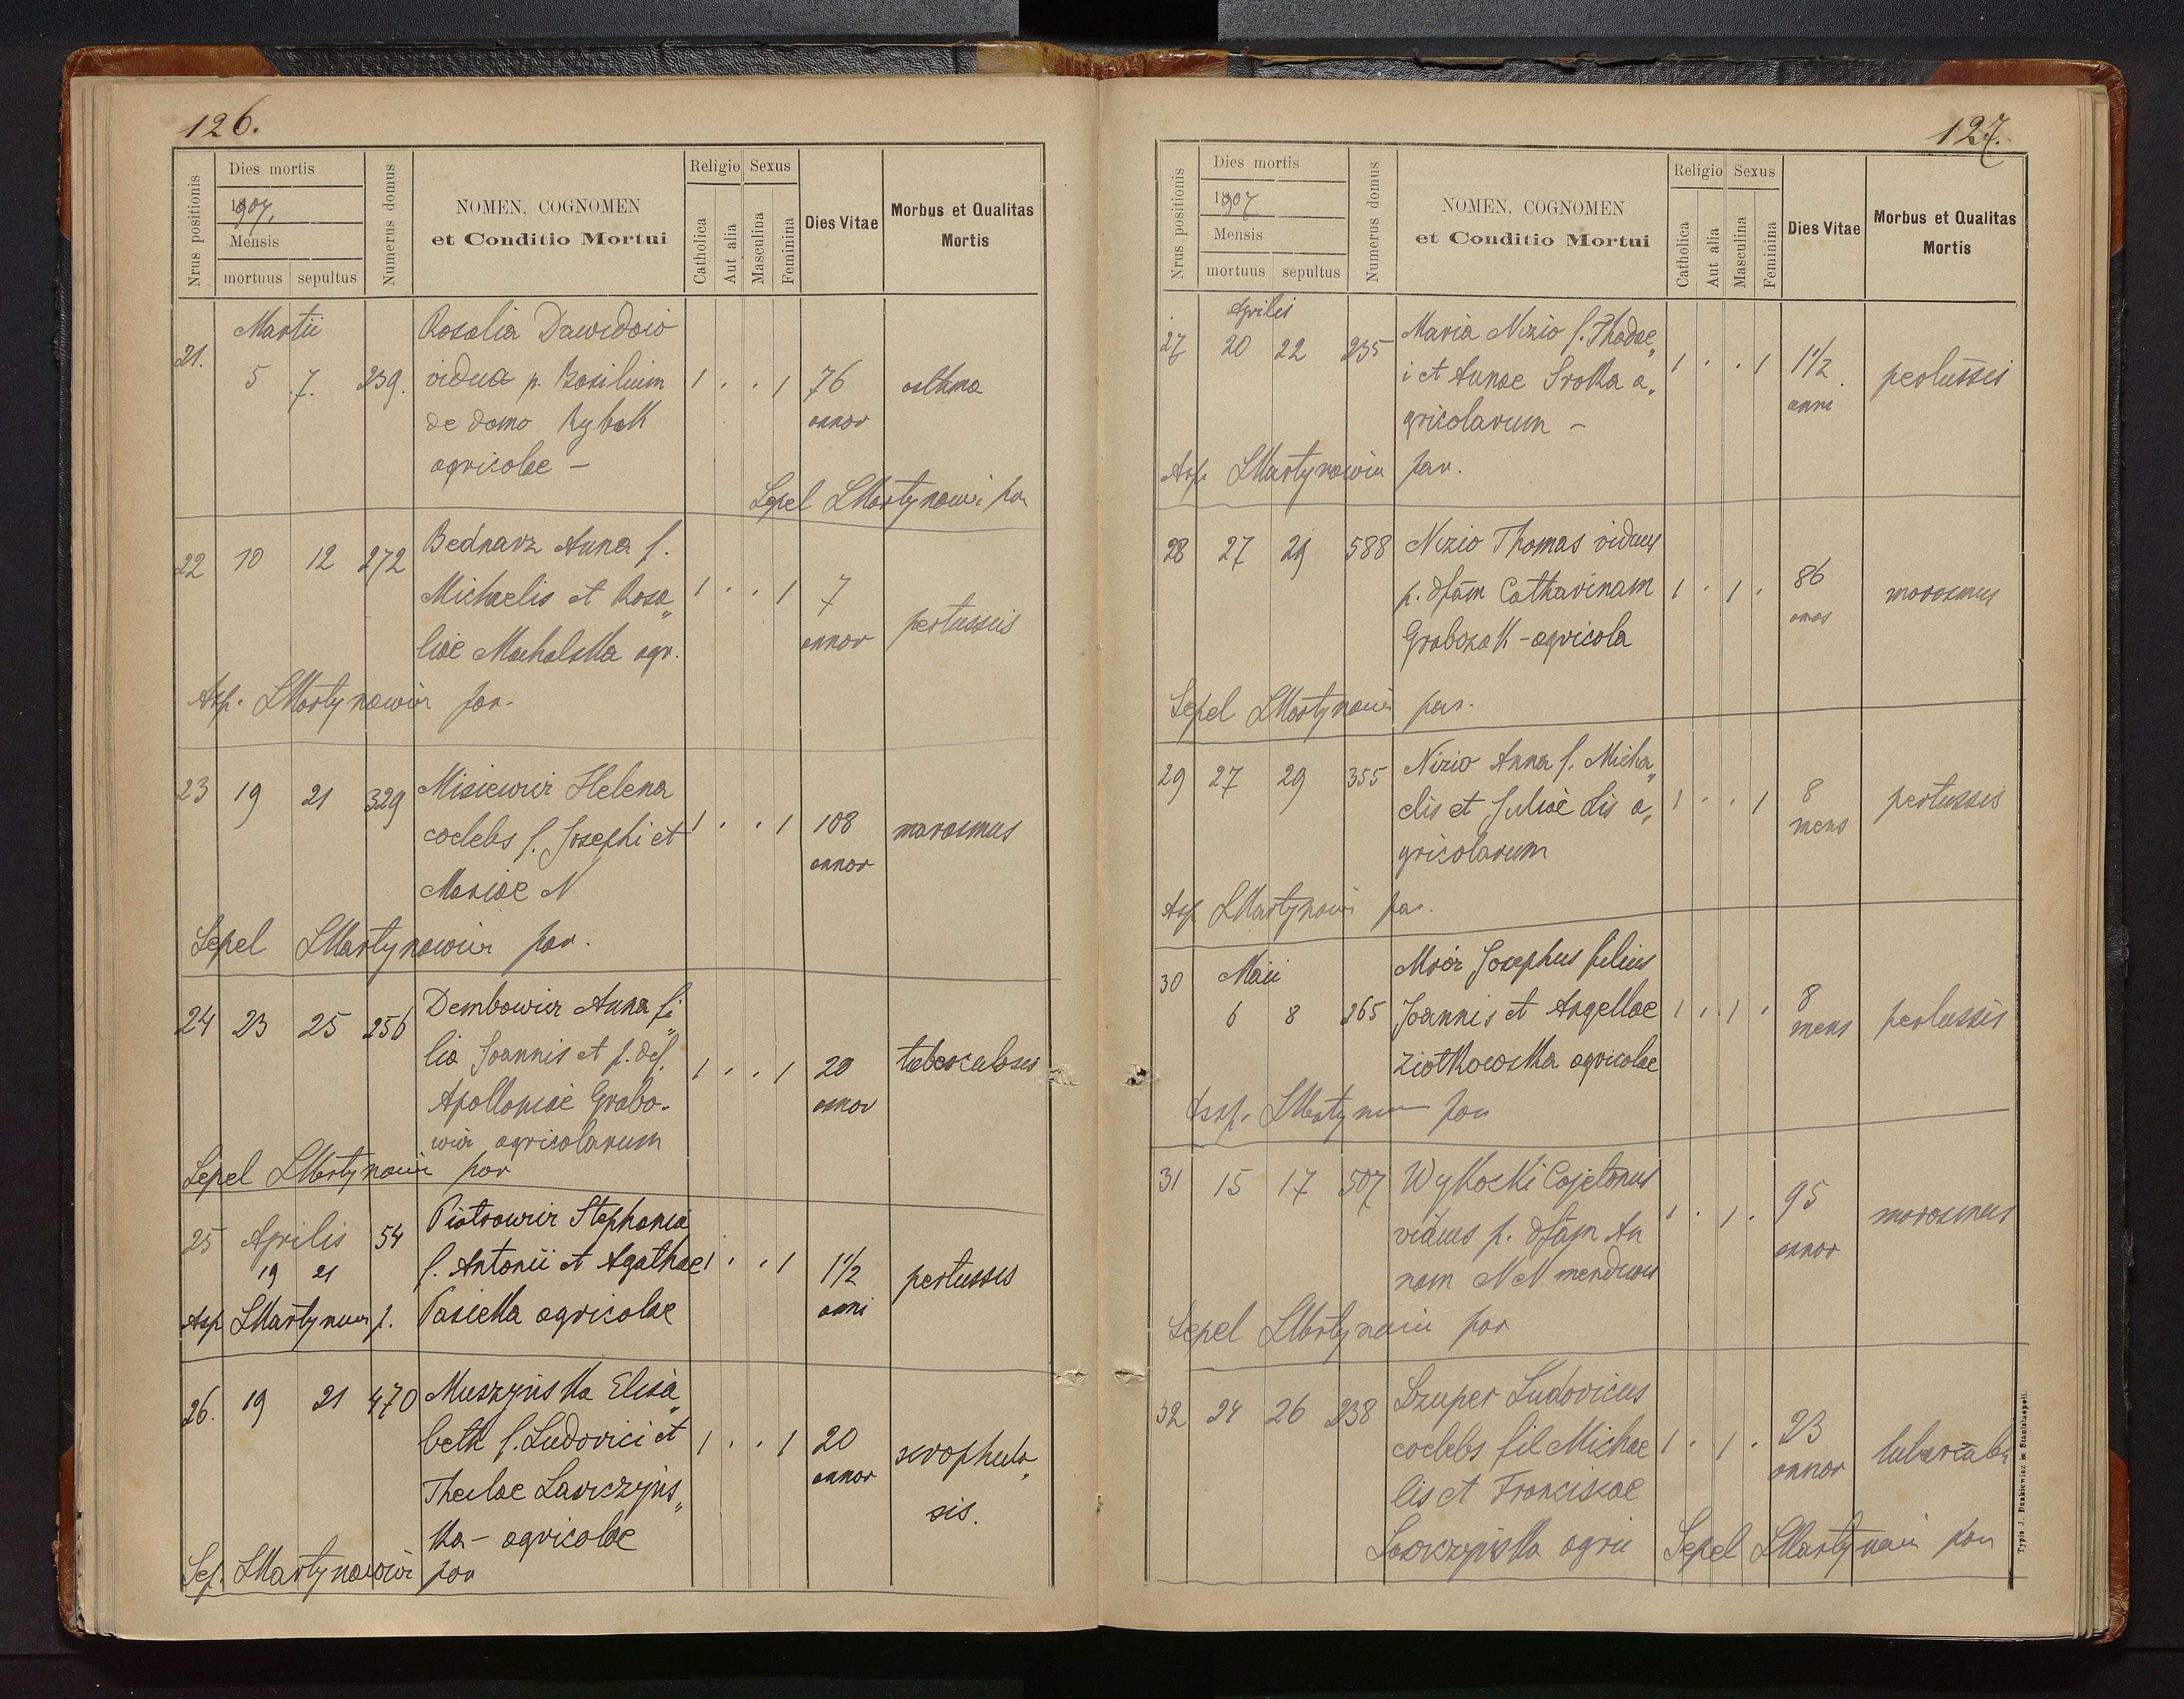 126.
Nrus positionis
Dies mortis
1907.
Mensis
mortuus sepultus
Numerus domus
NOMEN, COGNOMEN
et Conditio Mortui
Religio Sexus
Catholica
Aut alia
Masculina
Feminina
Dies Vitae
Morbus et Qualitas
Mortis
Martii
21. 5 7. 239.
Rosalia Dawidow
vidua p. Basilium
de domo Rybak
agricolae –
1 . . 1
76
annor
asthma
Sepel LMartynowi par
22 10 12 272
Bednarz Anna f.
Michaelis et Rosa„
liae Machalska agr.
1 . . 1
7
annor
pertussis
Asp. LMartynowicz par.
23 19 21 329
Misiewicz Helena
coelebs f. Josephi et
Mariae N
1 . . 1
108
annor
marasmus
Sepel LMartynowicz par.
24 23 25 256
Dembowicz Anna fi„
lia Joannis et p. def.
Apolloniae Grabo-
wicz agricolarum
1 . . 1
20
annor
tuberculosis
Sepel LMartynowicz par
25 Aprilis 54
19 21
Piotrowicz Stephania
f. Antonii et Agathae
Pasieka agricolae
1 . . 1
1 1/2
anni
pertussis
Asp LMartynowi p.
26. 19 21 470
Muszyńska Elisa„
beth f. Ludovici et
Theclae Ławczyńs„
ka – agricolae
1 . . 1
20
annor
scrophulo„
sis.
Sep. LMartynowicz par
127.
Nrus positionis
Dies mortis
1907
Mensis
mortuus sepultus
Numerus domus
NOMEN, COGNOMEN
et Conditio Mortui
Religio Sexus
Catholica
Aut alia
Masculina
Feminina
Dies Vitae
Morbus et Qualitas
Mortis
Aprilis
27 20 22 235
Maria Nizio f. Thadae„
i et Annae Sroka a„
gricolarum –
1 . . 1
1 1/2
anni
pertussis
Asp. LMartynowicz par.
28 27 29 588
Nizio Thomas viduus
p. dfām Catharinam
Grabczak – agricola
1 . 1 .
86
annor
marasmus
Sepel LMartynowicz par.
29 27 29 355
Nizio Anna f. Micha„
elis et Juliae Lis a„
gricolarum
1 . . 1
8
mens
pertussis
Asp LMartynowi par.
30 Maii
6 8 265
Mróz Josephus filius
Joannis et Angellae
Ziółkowska agricolae
1 . 1 .
8
mens
pertussis
Assp. LMartynow par
31 15 17 507
Wykocki Cajetanus
viduus p. dfām An
nam NN mendicus
1 . 1 .
95
annor
marasmus
Sepel LMartynowi par
32 24 26 238
Szuper Ludovicus
coelebs fil Michae
lis et Franciscae
agric
1 . 1 .
23
annor
Sepel LMartynowi par
Typis J. Dankiewicz in Stanislaopoli.